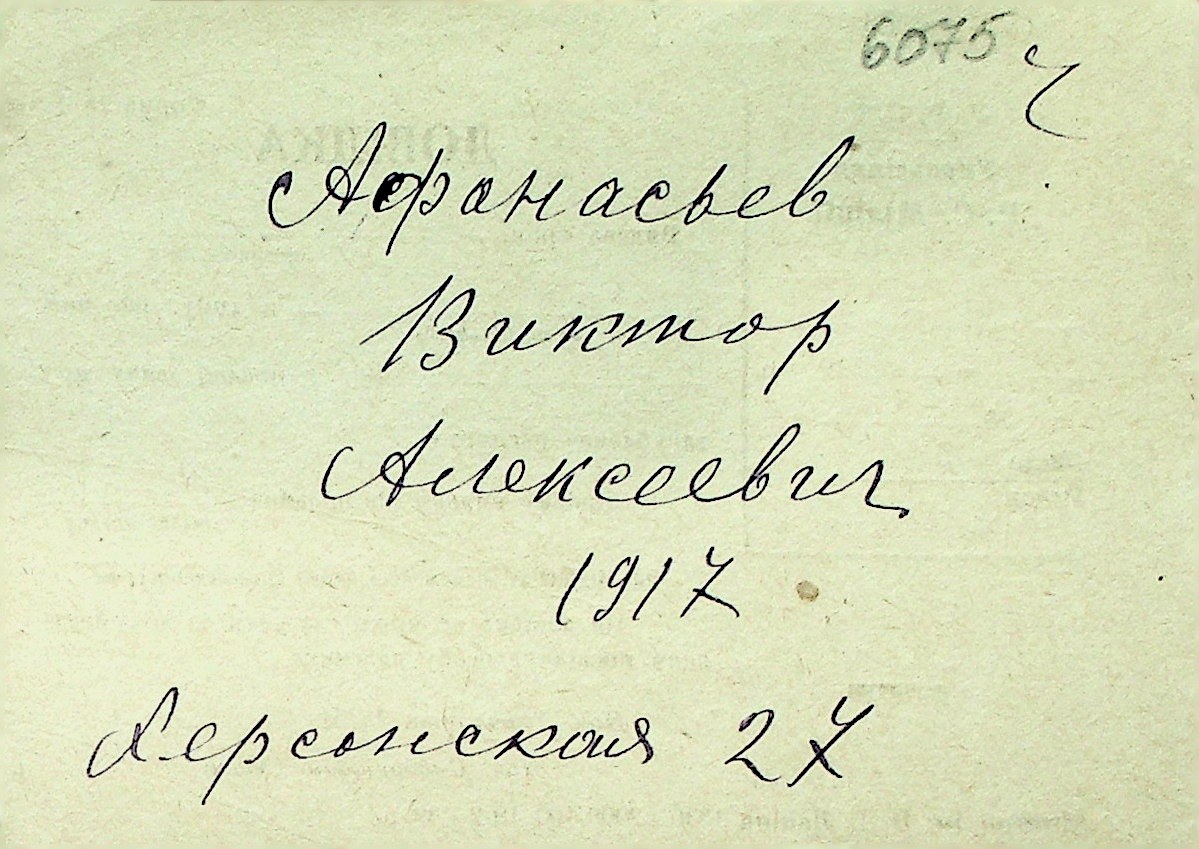 6075
Афанасьев
Виктор
Алексеевич
1917
Херсонская 27